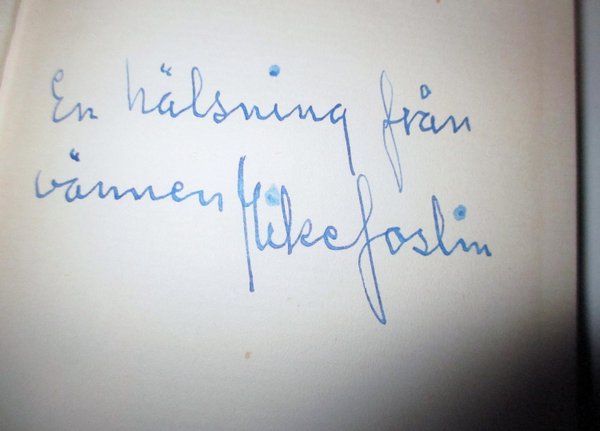 En hälsning från
vännen Mike Joslin